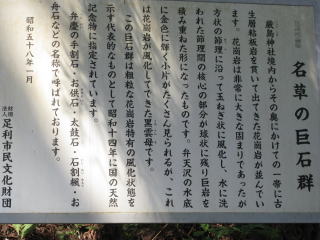 名草の巨石群
厳島神社境内からその奥にかけての一帯に古
生層粘板岩を貫いて出てきた花崗岩が並んでい
ます。花崗岩は非常に大きな固まりであったが
方状の節理に沿って玉ねぎ状に風化し、水に洗
われた節理間の核心の部分が球状に残り巨岩を
積み重ねた形になったものです。弁天沢の水底
に金色に輝く小片がたくさん見られるが、これ
は花崗岩が風化してできた黒雲母です。
この巨石群は粗粒な花崗岩特有の風化状態を
示す代表的なものとして昭和十四年に国の天然
記念物に指定されています。
弁慶の手割石・お供石・太鼓石・石割楓・お
舟石などの名称で呼ばれております。
昭和五十八年一月
財団法人 足利市民文化財団